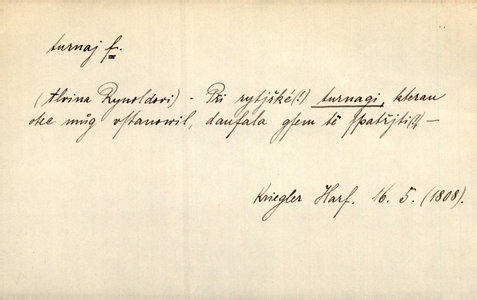 turnaj f.
(Alvina Rynoldovi) - Při rytjřské(!) turnagi, kterau
otec můg vstanowil, daufala gsem tě spatřjti(!) —
Kriegler Harf. 16. 5. (1808).